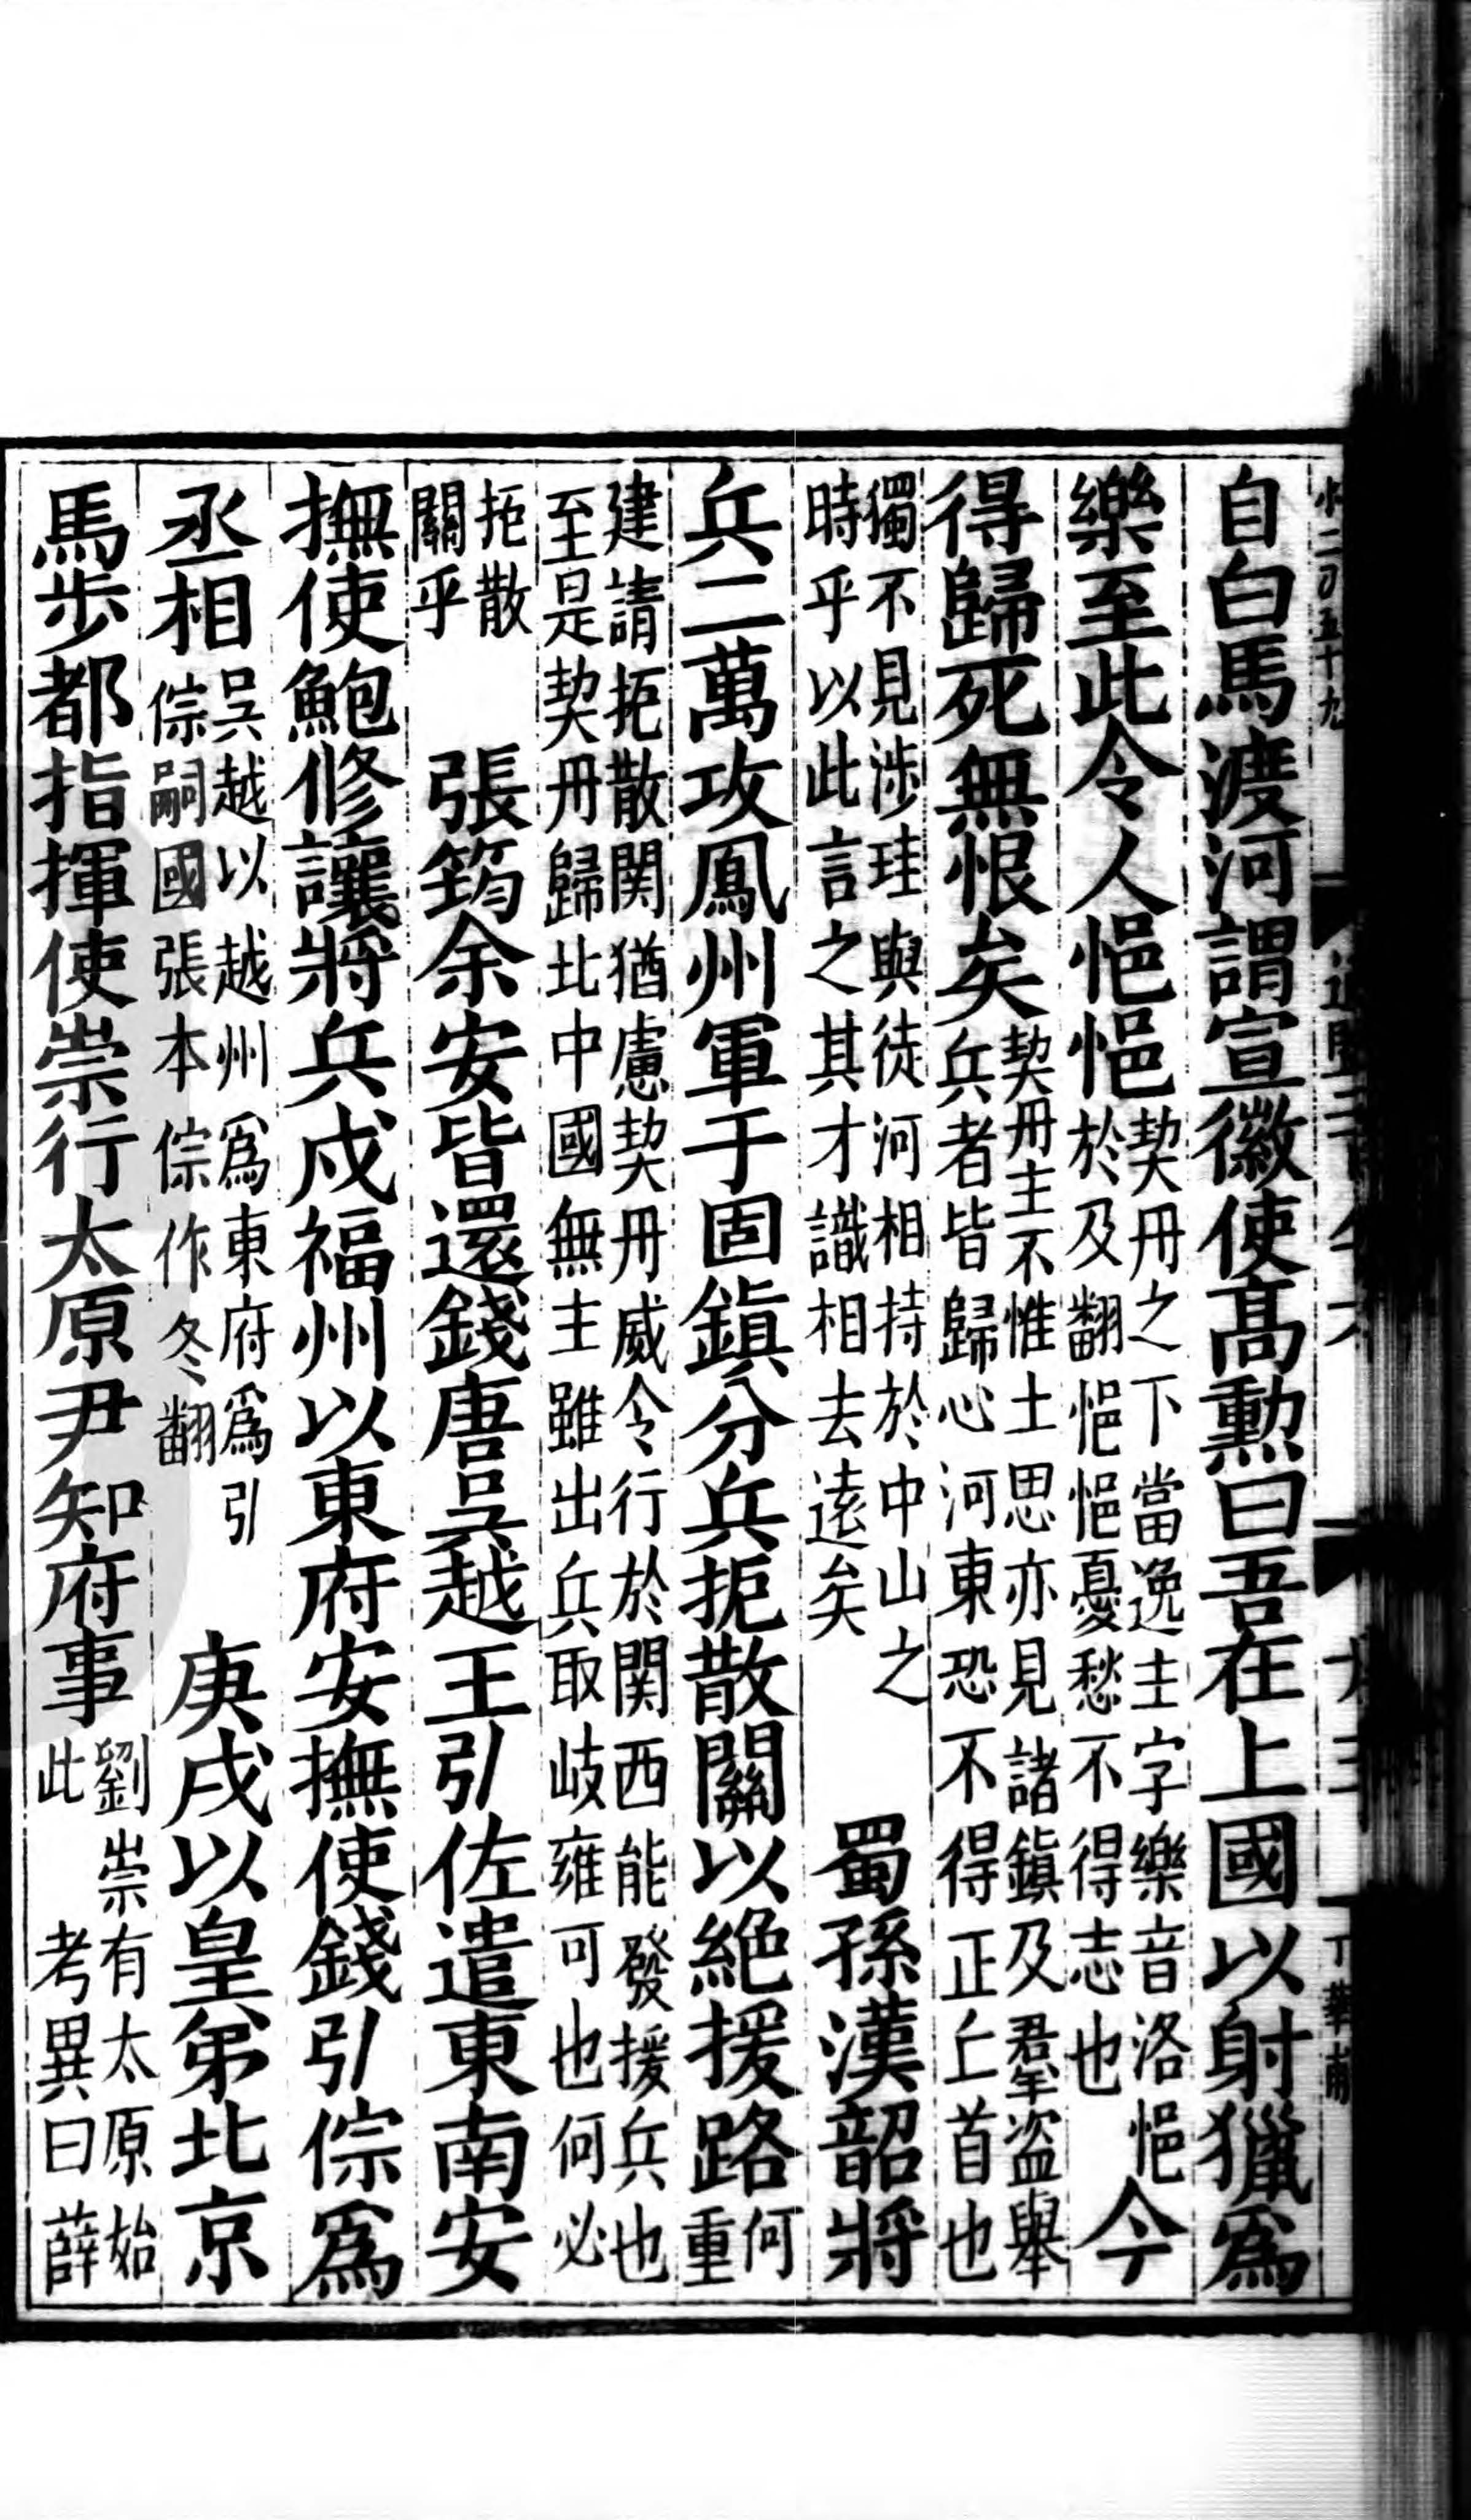 自白馬渡河謂宣徽使髙勲曰吾在上國以射獵爲
樂至此令人悒悒契丹之下當逸主字樂音洛悒於及翻悒悒憂愁不得志也今
得歸死無恨矣契丹主不惟土思亦見諸鎮及羣盗舉兵者皆歸心河東恐不得正丘首也
獨不見涉珪與徒河相持於中山之時乎以此言之其才識相去遠矣蜀孫漢韶將
兵二萬攻鳳州軍于固鎮分兵扼散關以絕援路何重
建請扼散関猶慮契丹威令行於関西能發援兵也至是契丹歸北中國無主雖出兵取岐雍可也何必
扼散關乎張筠余安皆還錢唐吳越王引佐遣東南安
撫使鮑修讓將兵戍福州以東府安撫使錢引倧爲
丞相吳越以越州爲東府爲引倧嗣國張本倧作冬翻庚戌以皇弟北京
馬步都指揮使崇行太原尹知府事劉崇有太原始此考異曰薛